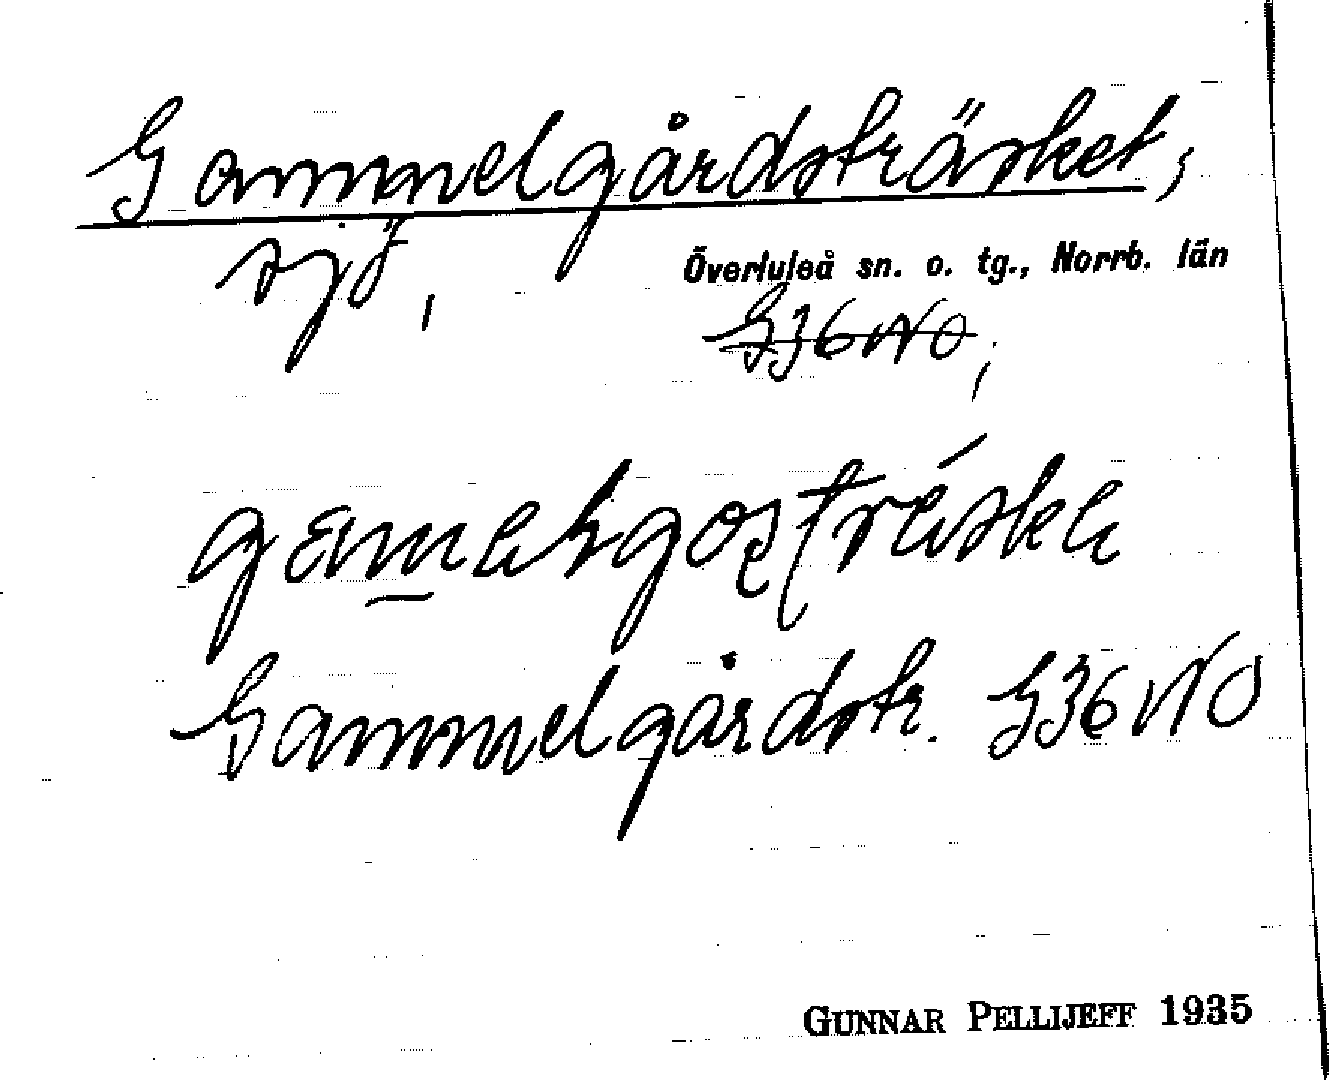 Gammelgårdsträsket,
sjö,
Överluleå sn. o. tg., Norrb. län
G36NO,
Gammelgårdstr. G36NO
GUNNAR PELLIJEFF 1935